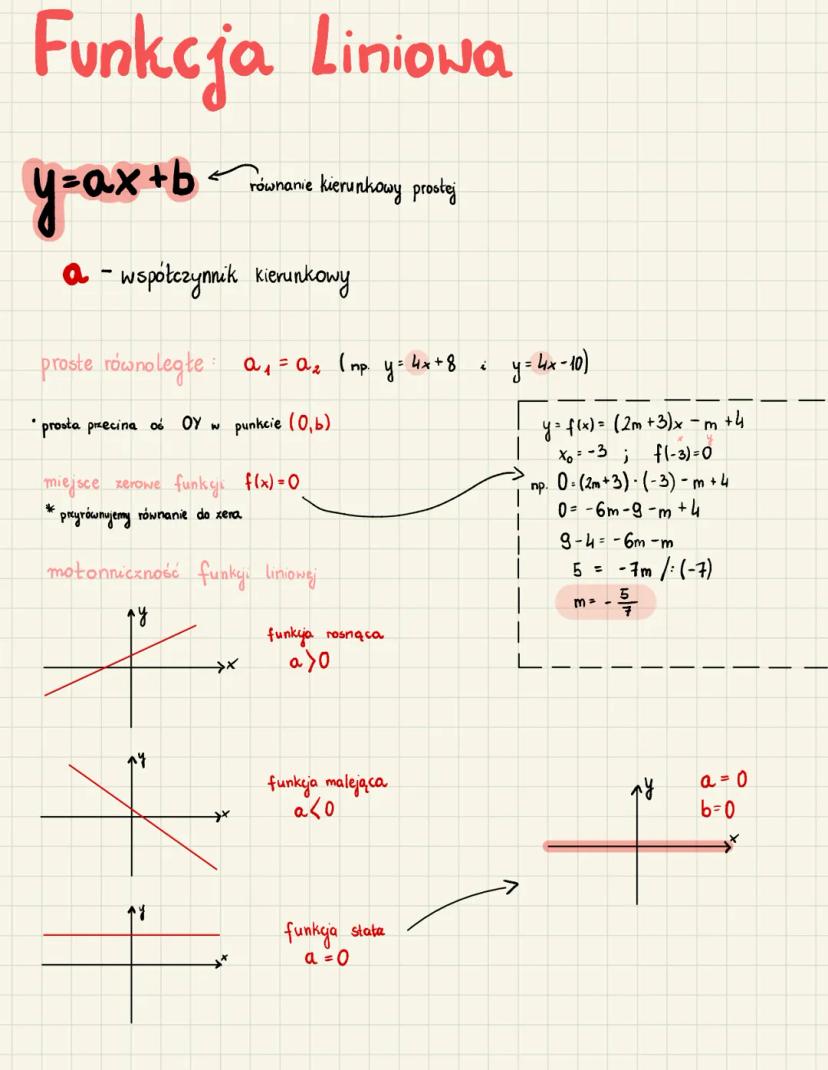 Funkcja Liniowa
y=ax+b
równanie kierunkowy prostej
a - współczynnik kierunkowy
proste równoległe: a₁ = a₂ (np. y=4x+8 i y=4x-10)
• prosta przecina oś OY w punkcie (0,b)
miejsce zerowe funkcji f(x)=0
* przyrównujemy równanie do zera
y=f(x)= (2m+3)x - m +4
x₀=-3 ; f(-3)=0
x y
np. 0=(2m+3)·(-3) - m +4
0= -6m-9 -m +4
9-4= -6m -m
5 = -7m /:(-7)
m= - 5/7
motonniczność funkcji liniowej
y
x
funkcja rosnąca
a>0
y
x
funkcja malejąca
a<0
y
x
funkcja stała
a =0
y
x
a = 0
b=0